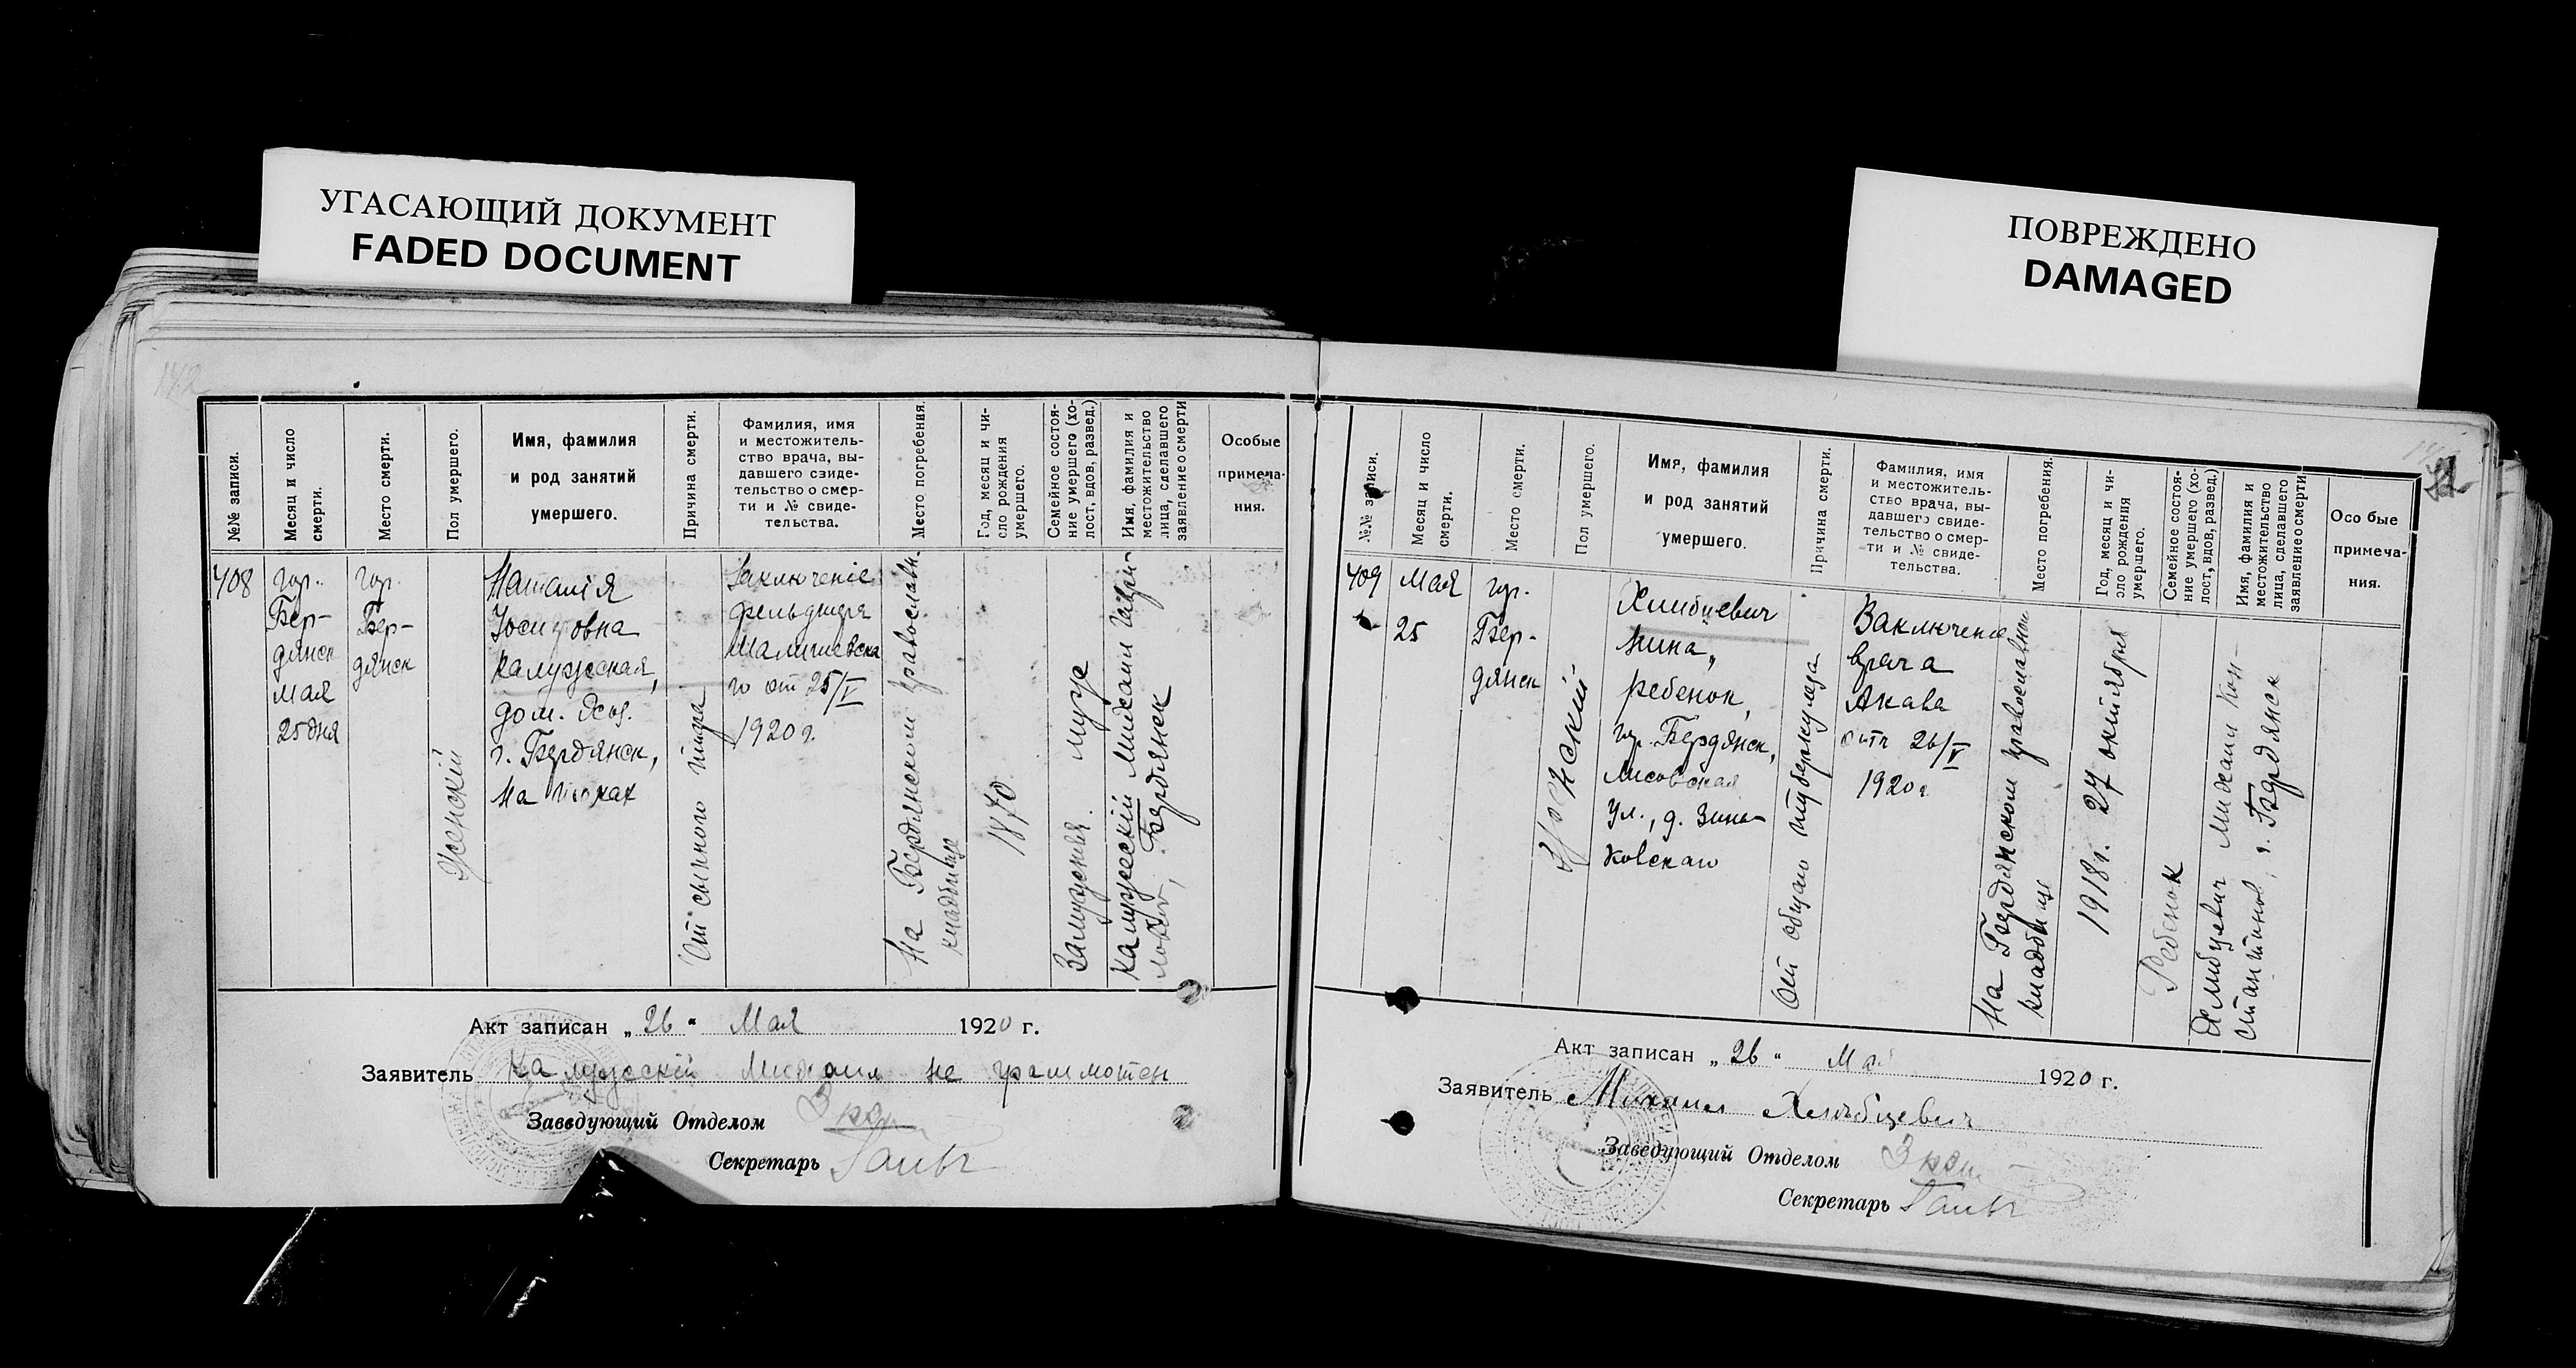 УГАСАЮЩИЙ ДОКУМЕНТ
FADED DOCUMENT
ПОВРЕЖДЕНО
DAMAGED
№№ записи.
Месяц и число
смерти.
Место смерти.
Пол умершего.
Имя, фамилия
и род занятий
умершего.
Причина смерти.
Фамилия, имя
и местожитель-
ство врача, вы-
давшего свиде-
тельство о смер-
ти и № свиде-
тельства.
Место погребения.
Год, месяц и чи-
сло рождения
умершего.
Семейное состоя-
ние умершего (хо-
лост, вдов, развед.)
Имя, фамилия и
местожительство
лица, сделавшего
заявление о смерти
Особые
примеча-
ния.
408
гор.
Бер-
дянск
мая
25 дня
гор.
Бер-
дянск
Женскій
Наталія
Іосифовна
Калужская,
дом. хоз.
г. Бердянск,
на
От сыпного тифа
Заключеніе
фельдшера
го от 25/V
1920 г.
На Бердянском православн.
кладбище
1870
Замужняя. муж
Калужскій Михаил Гаври-
лович, г. Бердянск
Акт записан „26“ Мая 1920 г.
Заявитель Калужскій Михаил не грамотен
Заведующий Отделом
Секретарь
№№ записи.
Месяц и число
смерти.
Место смерти.
Пол умершего.
Имя, фамилия
и род занятий
умершего.
Причина смерти.
Фамилия, имя
и местожитель-
ство врача, вы-
давшего свиде-
тельство о смер-
ти и № свиде-
тельства.
Место погребения.
Год, месяц и чи-
сло рождения
умершего.
Семейное состоя-
ние умершего (хо-
лост, вдов, развед.)
Имя, фамилия и
местожительство
лица, сделавшего
заявление о смерти
Осо бые
примеча-
ния.
409
Мая
25
гор.
Бер-
дянск
Женскій
Хлибцевич
Нина,
ребенок,
гор. Бердянск,
Лисовская
ул., д. Зинь-
ковскаго
От общаго туберкулеза
Заключение
врача
Акава
от 26/V
1920 г.
На Бердянском православном
кладбище
1918 г. 27 октября
Ребенок
Хлибцевич Михаил Кон-
стантинов., г. Бердянск
Акт записан „26“ Мая 1920 г.
Заявитель Михаил Хлебцевич
Заведующий Отделом
Секретарь